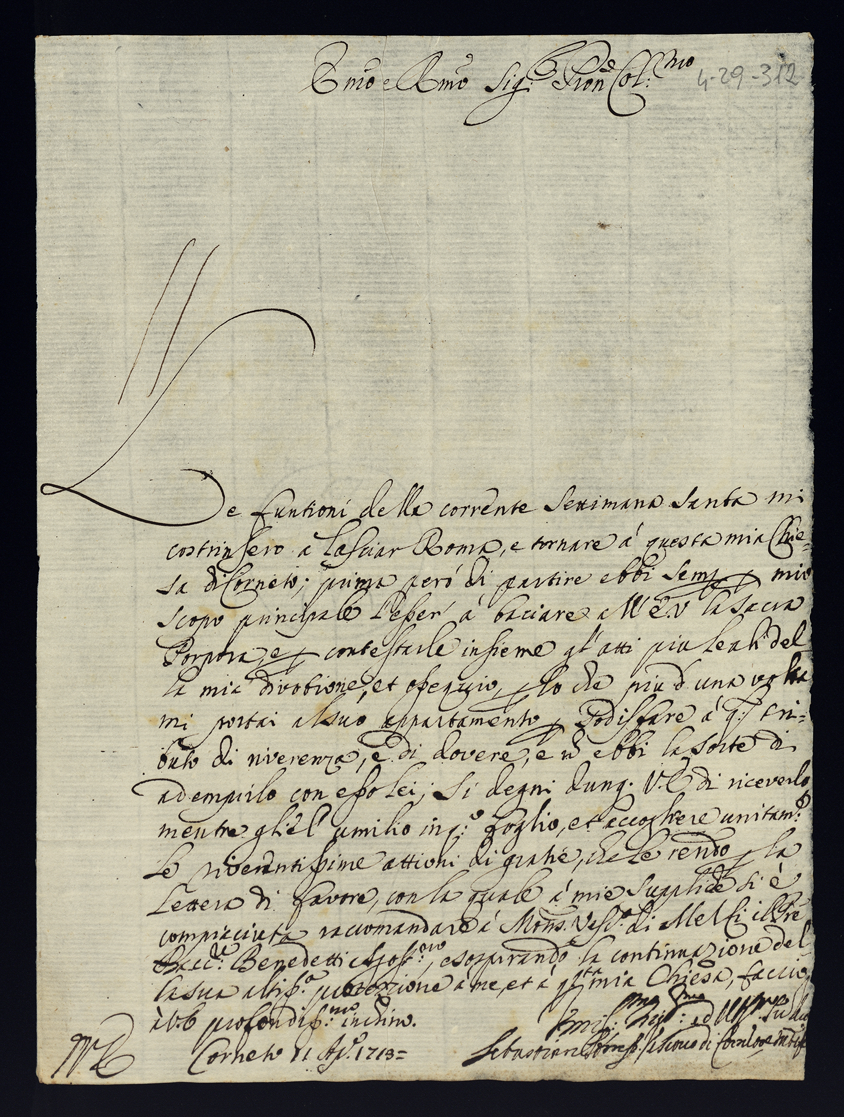 Emo e Rmo Sig:r Pron Col:mo
4-29-312
Le funtioni della corrente Settimana Santa mi
costrinsero a lasciar Roma, e tornare á questa mia Chie=
sa di Corneto; prima peró di partire ebbi semp. mio
scopo principale l'esser' á baciare a V.E. la Sacra
Porpora, e contestarle insieme gl'atti piu leali del
la mia divotione, et ossequio, lo che piu d'una volta
mi portai al suo appartamento Sodisfare á q.to tri=
buto di riverenza, e di dovere, e ebbi la sorte di
adempirlo con esso lei; Si degni dunq. V.E. di riceverlo
mentre gliel' umilio in q.o foglio, et accogliere unitam.e
le riverentissime attioni di gratie, che le rendo la
lettera di favore, con la quale á mie suppliche si è
compiaciuta raccomandare á Mons. Vesc.o di Melfi
Benedetti, e sospirando la continuazione del
la sua altis.a protezione á me, et á q.ta mia Chiesa, faccio
à V.E. profondis.mo inchino.
Corneto 11 Ap.e 1713=
Sebastiano Vescovo di